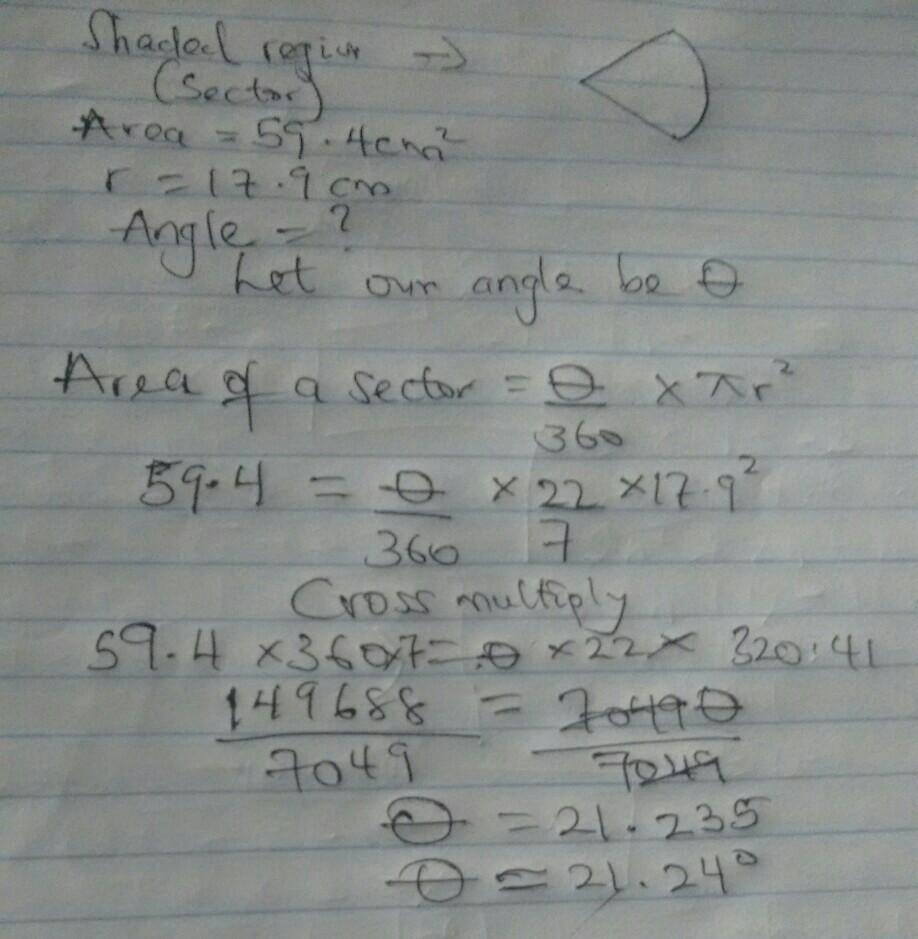 Shaded region →
(Sector)
Area = 59.4cm²
r = 17.9 cm
Angle = ?
Let our angle be θ
Area of a sector = θ/360 × πr²
59.4 = θ/360 × 22/7 × 17.9²
Cross multiply
59.4 × 360×7 = θ × 22 × 320.41
149688/7049 = 7049θ/7049
θ = 21.235
θ = 21.24°